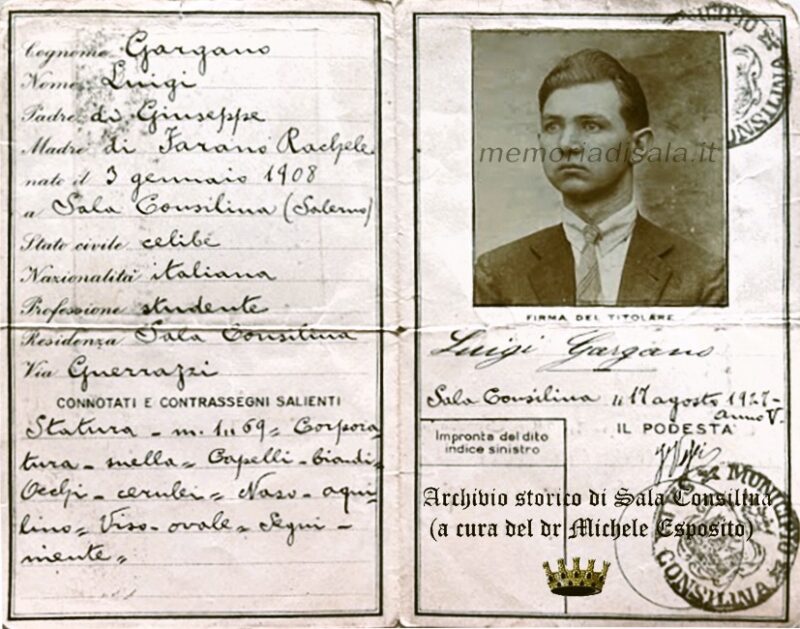 Cognome Gargano
Nome Luigi
Padre di Giuseppe
Madre di Farano Rachele
nato il 3 gennaio 1908
a Sala Consilina (Salerno)
Stato civile celibe
Nazionalità italiana
Professione studente
Residenza Sala Consilina
Via Guerrazzi
CONNOTATI E CONTRASSEGNI SALIENTI
Statura - m. 1.69 - Corpora-
tura - snella - Capelli - biondi -
Occhi - cerulei - Naso - aqui-
lino - Viso - ovale - Segni -
niente -
MUNICIPIO
CONSILINA
memoriadisala.it
FIRMA DEL TITOLARE
Luigi Gargano
Sala Consilina li 17 agosto 1927 -
Anno V.
IL PODESTÀ
Impronta del dito
indice sinistro
Archivio storico di Sala Consilina
(a cura del dr Michele Esposito)
MUNICIPIO
CONSILINA